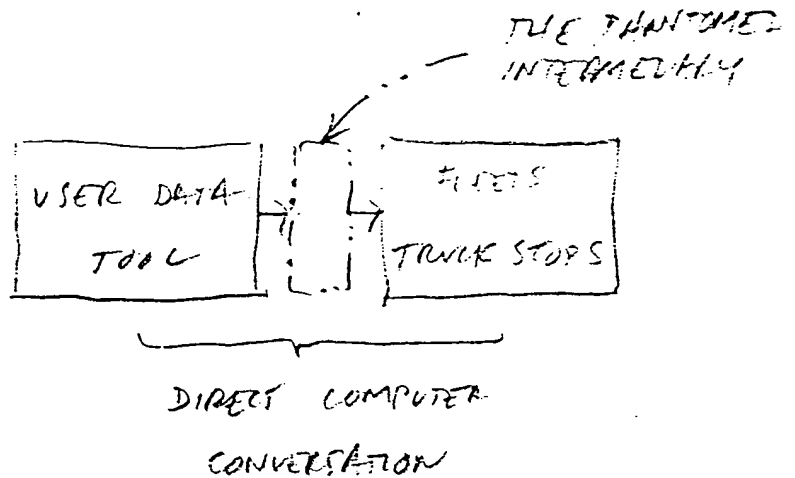 THE
INTERMEDIARY
USER DATA
TOOL
FLEETS
TRUCK STOPS
DIRECT COMPUTER
CONVERSATION